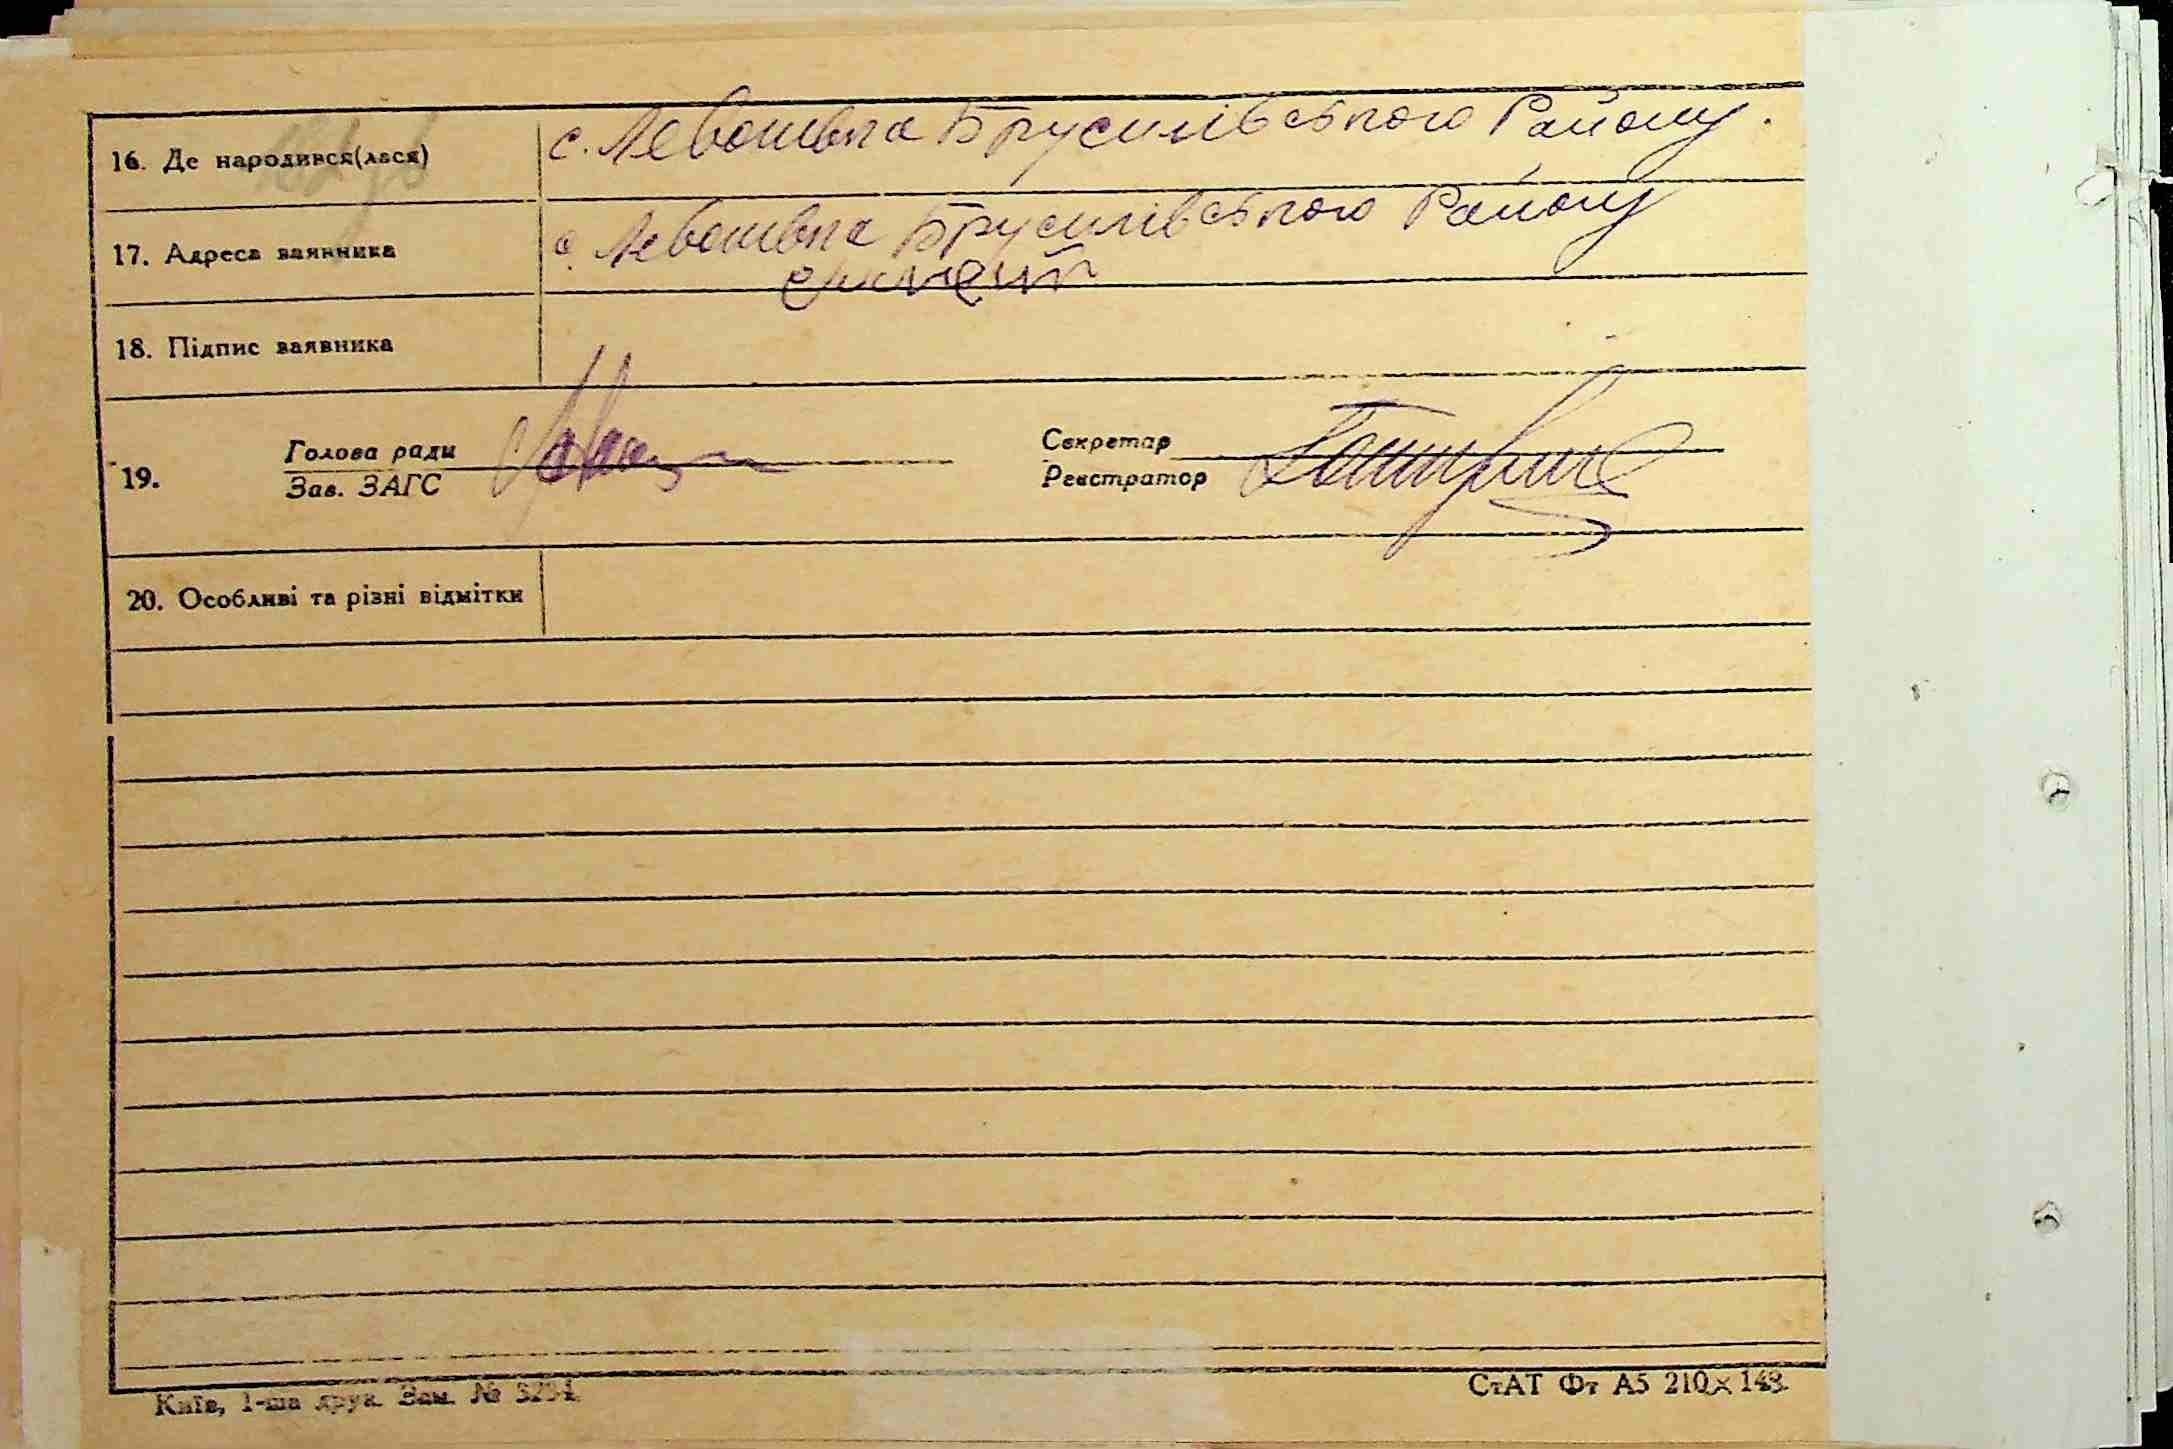 16. Де народився(лася) с. Йевошівка Брусилівського Району.
17. Адреса заявника с. Йевошівка Брусилівського Району
18. Підпис заявника
19. Голова ради Секретар
Зав. ЗАГС Реєстратор
20. Особливі та різні відмітки
Київ, 1-ша друк. Зам. № 3254.
СтАТ Фт А5 210×148.